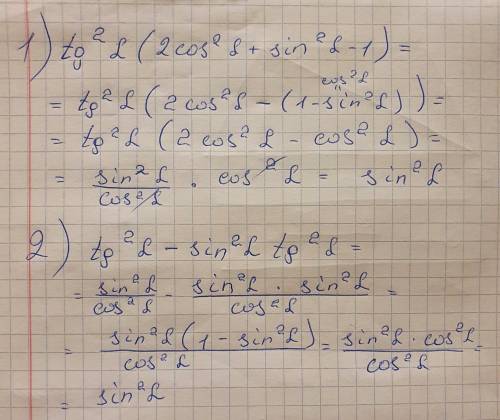 1) tg² α (2cos² α + sin² α - 1) =
cos² α
"
= tg² α (2cos² α - (1 - sin² α)) =
= tg² α (2cos² α - cos² α) =
= sin² α / cos² α · cos² α = sin² α
2) tg² α - sin² α tg² α =
= sin² α / cos² α - sin² α · sin² α / cos² α =
= sin² α (1 - sin² α) / cos² α = sin² α · cos² α / cos² α =
= sin² α